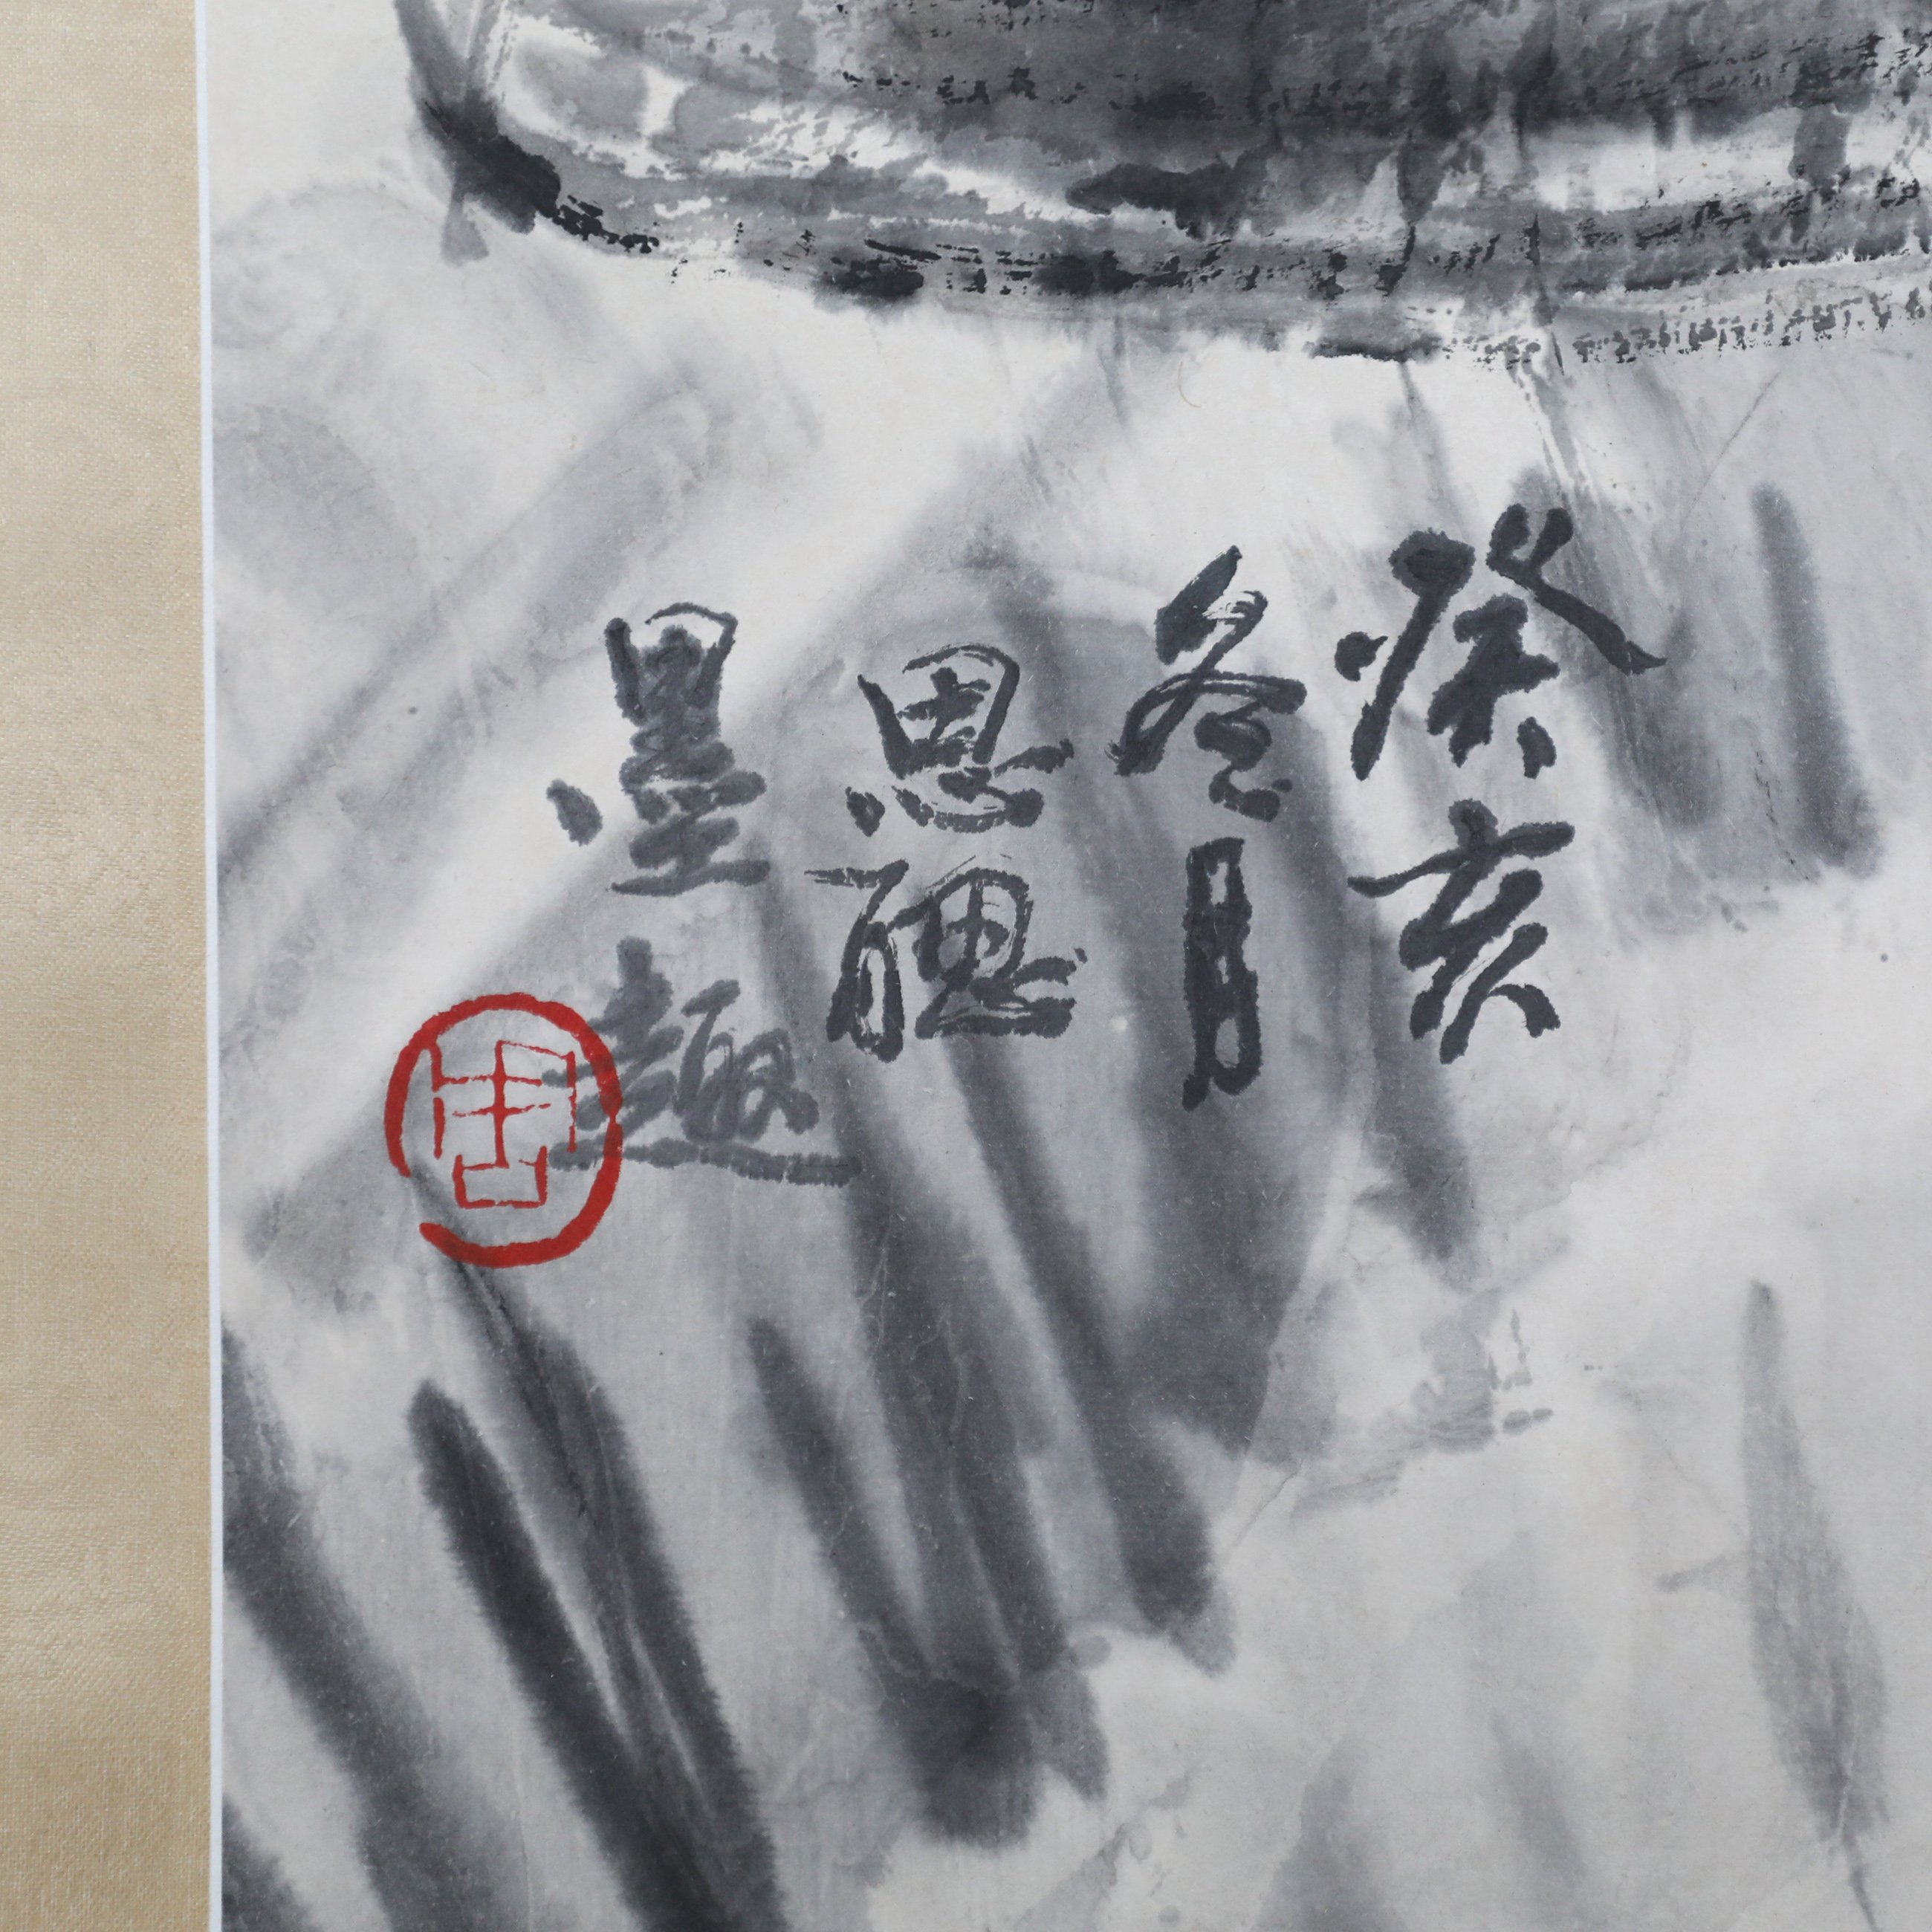 癸亥
冬月
思聰
墨趣
周